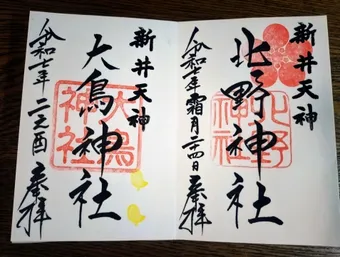 新井天神
北野神社
令和七年霜月二十四日 奉拝
北野神社
新井天神
大鳥神社
令和七年 二之酉 奉拝
大鳥神社